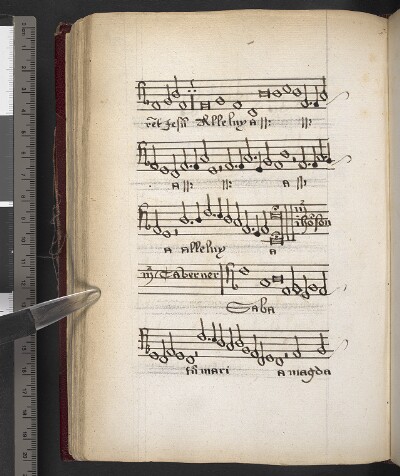 rect Jesū Alleluy a :||: :||:
a :||: :||: a :||:
a alleluy a
mr Johnson
mr Taberner
Saba
tū mari a magda